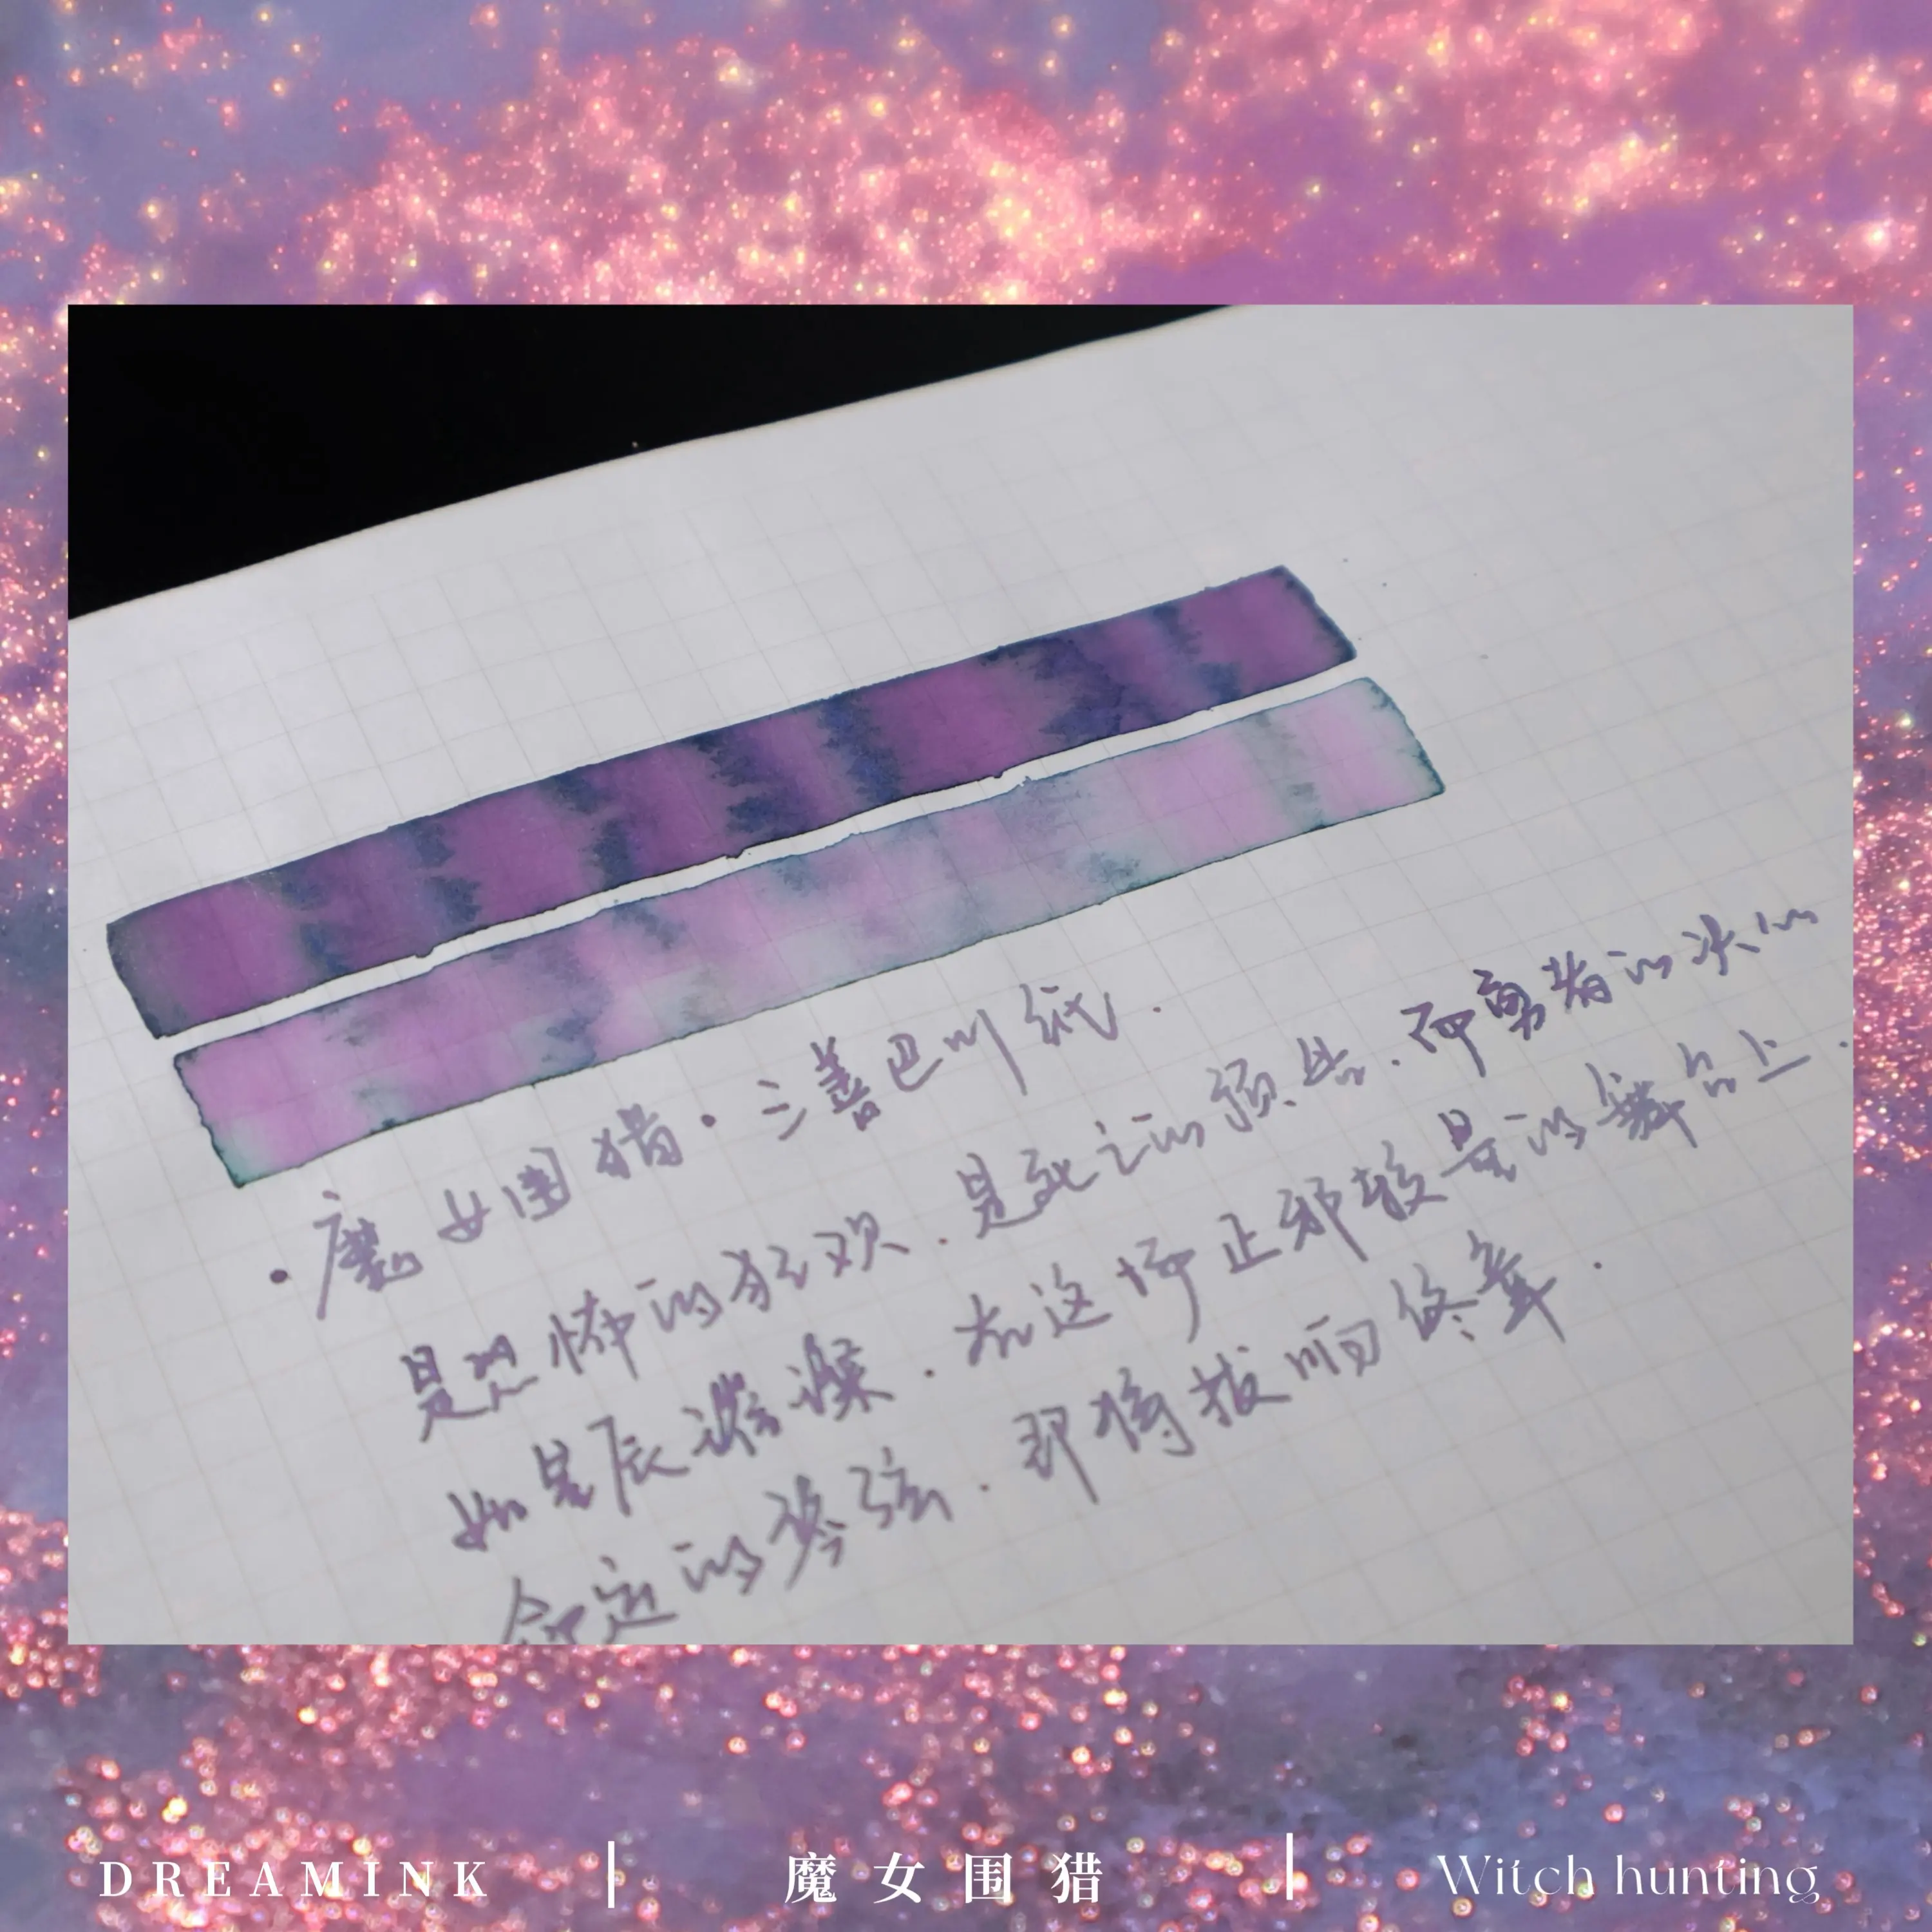 ·魔女围猎·三善巴川纸.
是恐怖的狂欢.是死亡的预告.而勇者的决心
如星辰璀璨.在这场正邪较量的舞台上.
命定的琴弦.即将拨响终章.
DREAMINK | 魔女围猎 | Witch hunting